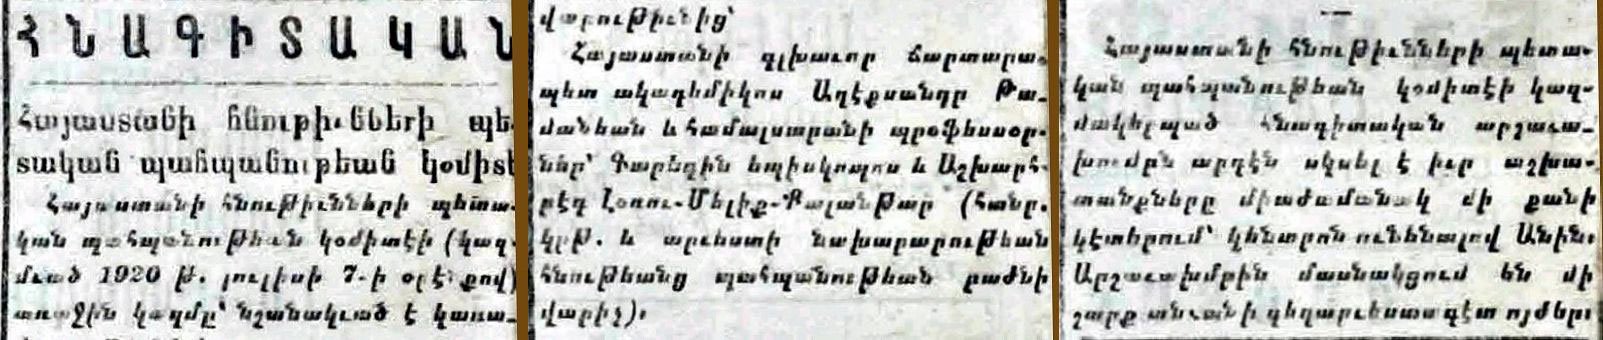 ՀՆԱԳԻՏԱԿԱՆ
Հայաստանի հնութիւնների պե-
տական պահպանութեան կօմիտէ
Հայաստանի հնութիւնների պետա-
կան պահպանութեան կօմիտէի (կազ-
մւած 1920 թ. յուլիսի 7-ի օրէնքով)
առաջին կազմը՝ նշանակւած է կառա-
վարութիւնից՝
Հայաստանի գլխաւոր ճարտարա-
պետ ակադեմիկոս Աղէքսանդր Թա-
մանեան և համալսարանի պրօֆեսսօր-
ներ՝ Գարեգին եպիսկոպոս և Աշխարհ-
բէգ Լօռու-Մելիք-Քալանթար (հանր.
կրթ. և արւեստի նախարարութեան
հնութեանց պահպանութեան բաժնի
վարիչ)։
Հայաստանի հնութիւնների պետա-
կան պահպանութեան կօմիտէի կազ-
մակերպած հնագիտական արշաւա-
խումբն արդէն սկսել է իւր աշխա-
տանքները միաժամանակ մի քանի
կէտերում՝ կենտրոն ունենալով Անին։
Արշաւախմբին մասնակցում են մի
շարք անւանի գեղարւեստագէտ ոյժեր։